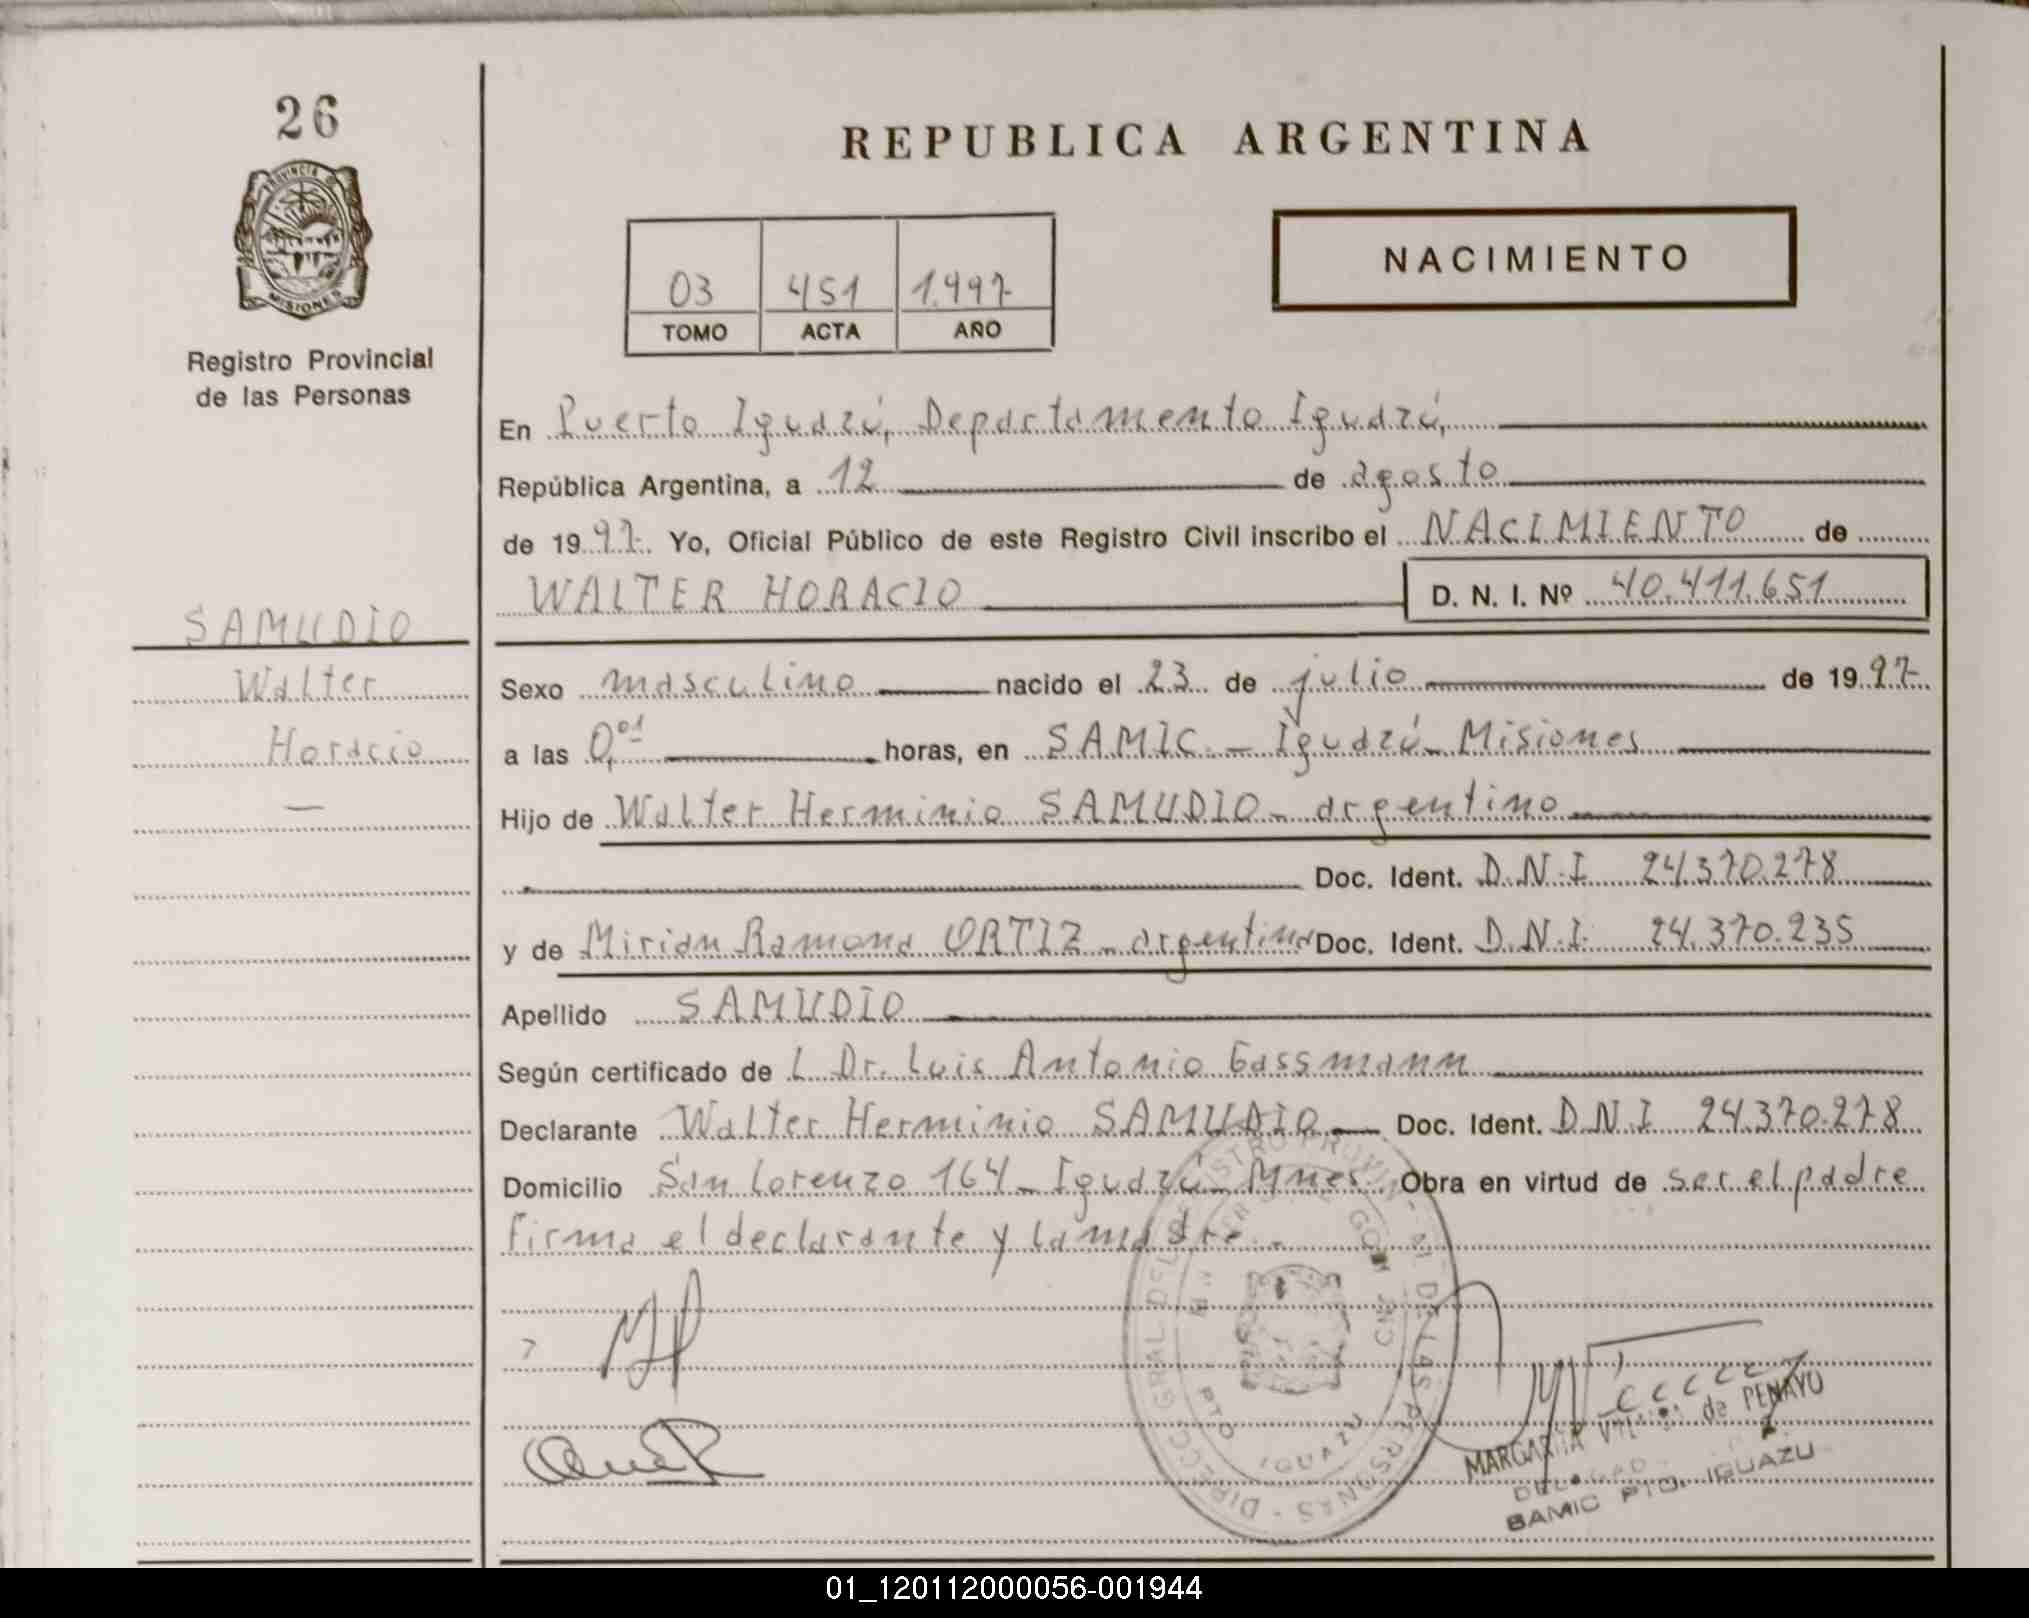 26
REPUBLICA ARGENTINA
PROVINCIA D
MISIONES
Registro Provincial
de las Personas
03 451 1.997
TOMO ACTA AÑO
NACIMIENTO
En Puerto Iguazú, Departamento Iguazú,
República Argentina, a 12 de agosto
de 1997. Yo, Oficial Público de este Registro Civil inscribo el NACIMIENTO de
WALTER HORACIO D. N. I. Nº 40.411.651
SAMUDIO
Walter
Horacio
—
Sexo masculino nacido el 23 de julio de 1997
a las 0,01 horas, en SAMIC - Iguazú - Misiones
Hijo de Walter Herminio SAMUDIO - argentino
Doc. Ident. D.N.I 24.370.278
y de Mirian Ramona ORTIZ - argentina Doc. Ident. D.N.I. 24.370.235
Apellido SAMUDIO
Según certificado de L Dr. Luis Antonio Gassmann
Declarante Walter Herminio SAMUDIO Doc. Ident. D.N.I 24.370.278
Domicilio San Lorenzo 164 - Iguazú - Mnes. Obra en virtud de ser el padre
firma el declarante y la madre. -
DIRECC GRAL DEL REGISTRO PROVINCIAL DE LAS PERSONAS
PTO IGUAZU
MARGARITA de PENAYO
SAMIC PTO. IGUAZU
01_120112000056-001944